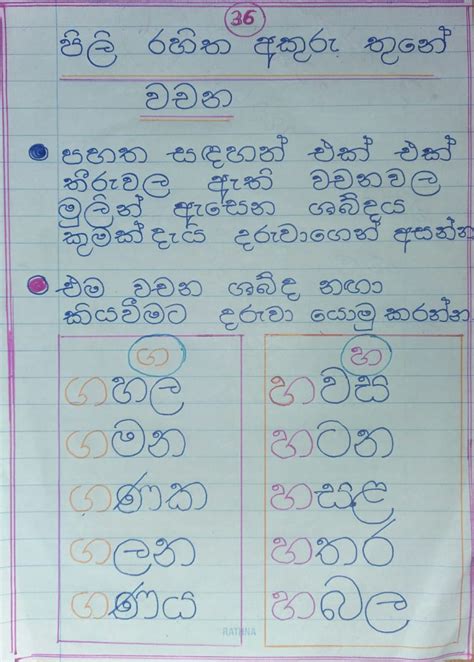 36
පිලි රහිත අකුරු තුනේ
වචන
පහත සඳහන් එක් එක්
තීරුවල ඇති වචනවල
මුලින් ඇසෙන ශබ්දය
කුමක්දැයි දරුවාගෙන් අසන්න
එම වචන ශබ්ද නඟා
කියවීමට දරුවා යොමු කරන්න.
ග හ
ගහල හවස
ගමන හටන
ගණක හසළ
ගලන හතර
ගණය හබල
RATHNA